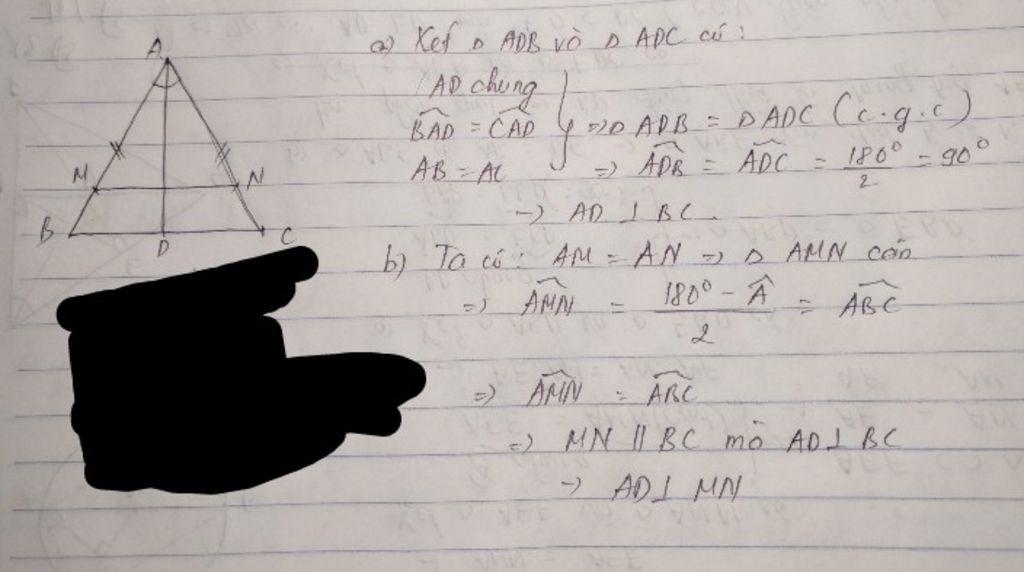 A
M
N
B
D
C
a) Xét Δ ADB và Δ ADC có :
AD chung
BAD̂ = CAD̂ } => Δ ADB = Δ ADC (c.g.c)
AB = AC => ADB̂ = ADĈ = 180° / 2 = 90°
-> AD ⊥ BC.
b) Ta có : AM = AN => Δ AMN cân
=> AMN̂ = 180° - Â / 2 = ABĈ
=> AMN̂ = ABĈ
=> MN // BC mà AD ⊥ BC
-> AD ⊥ MN